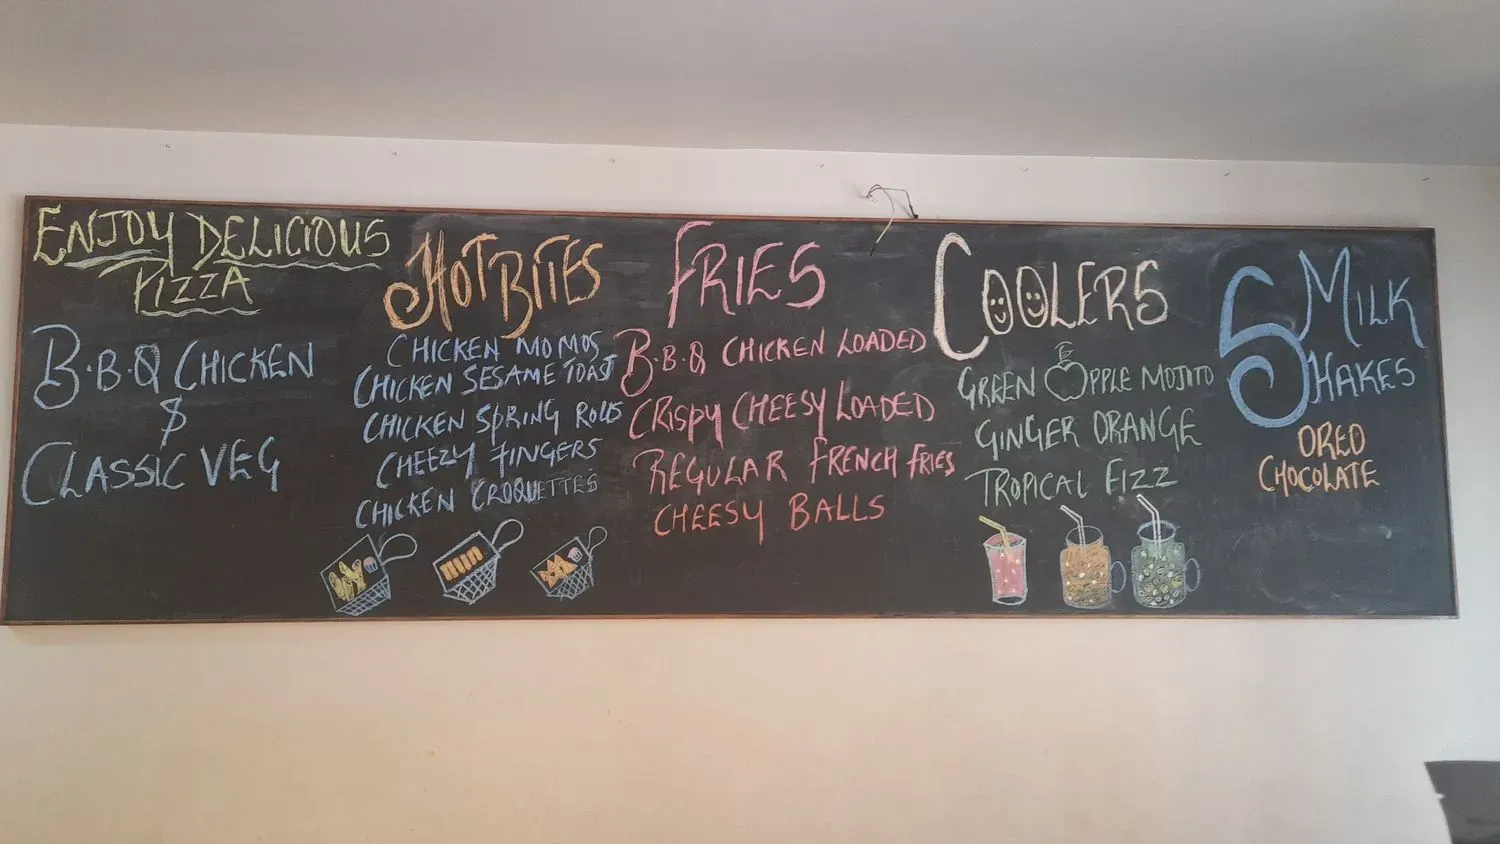 ENJOY DELICIOUS
PIZZA
B.B.Q CHICKEN
&
CLASSIC VEG
HOT BITES
CHICKEN MOMOS
CHICKEN SESAME TOAST
CHICKEN SPRING ROLLS
CHEEZY FINGERS
CHICKEN CROQUETTES
FRIES
B.B.Q CHICKEN LOADED
CRISPY CHEESY LOADED
REGULAR FRENCH FRIES
CHEESY BALLS
COOLERS
GREEN APPLE MOJITO
GINGER ORANGE
TROPICAL FIZZ
MILK
SHAKES
OREO
CHOCOLATE